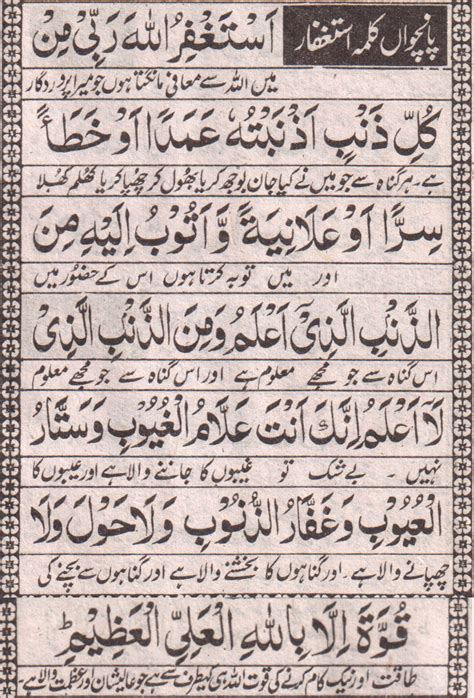 پانچواں کلمہ استغفار
اَسْتَغْفِرُ اللّٰهَ رَبِّیْ مِنْ
میں اللہ سے معافی مانگتا ہوں جو میرا پروردگار
کُلِّ ذَنْۢبٍ اَذْنَبْتُهٗ عَمَدًا اَوْ خَطَأً
ہے، ہر گناہ سے جو میں نے کیا جان بوجھ کر یا بھول کر چھپا کر یا کھلم کھلا
سِرًّا اَوْ عَلَانِیَةً وَّاَتُوْبُ اِلَیْهِ مِنَ
اور میں توبہ کرتا ہوں اس کے حضور میں
الذَّنْۢبِ الَّذِیْٓ اَعْلَمُ وَمِنَ الذَّنْۢبِ الَّذِیْ
اس گناہ سے جو مجھے معلوم ہے اور اس گناہ سے جو مجھے معلوم
لَآ اَعْلَمُ اِنَّكَ اَنْتَ عَلَّامُ الْغُیُوْبِ وَسَتَّارُ
نہیں ۔ بے شک تو غیبوں کا جاننے والا ہے اور عیبوں کا
الْعُیُوْبِ وَغَفَّارُ الذُّنُوْبِ وَلَاحَوْلَ وَلَا
چھپانے والا ہے۔ اور گناہوں کا بخشنے والا ہے اور گناہوں سے بچنے کی
قُوَّةَ اِلَّا بِاللّٰهِ الْعَلِیِّ الْعَظِیْمِ ط
طاقت اور نیک کام کرنے کی قوت اللہ ہی کیطرف سے ہے جو عالیشان اور عظمت والا ہے۔